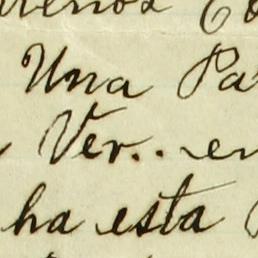 Una Pa
Ver.. en
ha esta